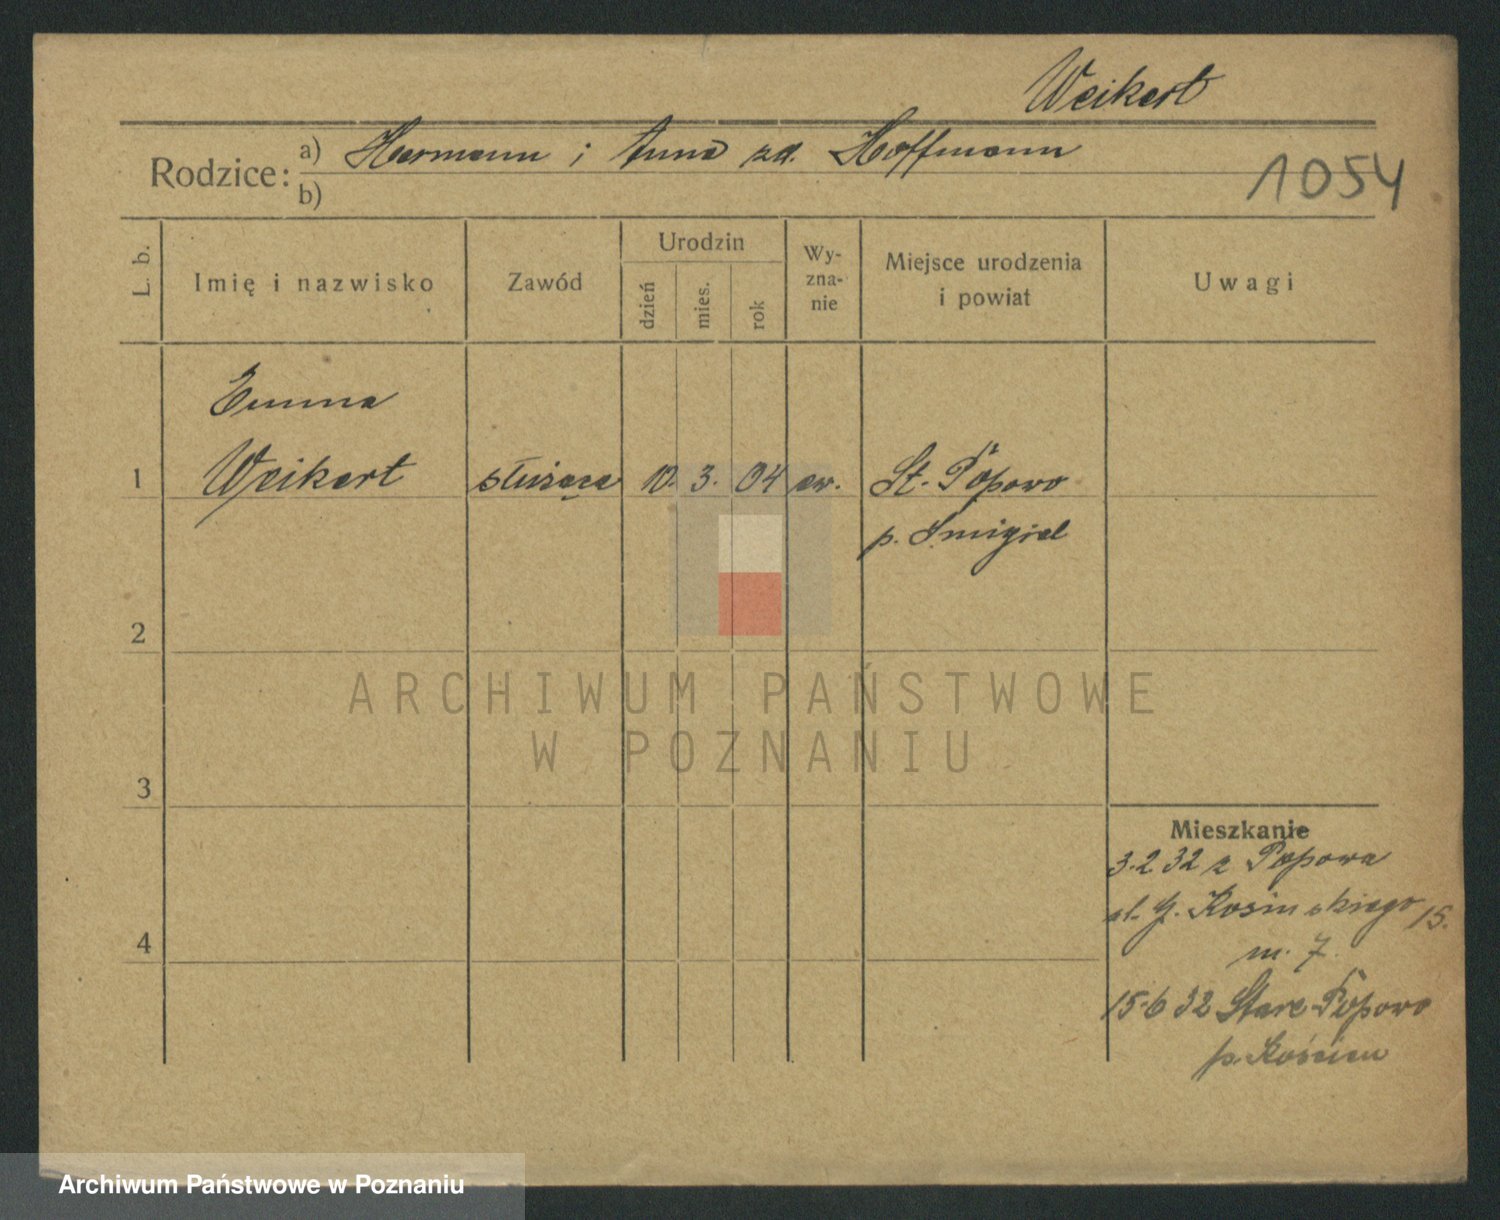 Weikert
Rodzice: a) Hermann i Anna zd. Hoffmann
b)
1054
L. b.
Imię i nazwisko
Zawód
Urodzin
dzień
mies.
rok
Wy-
zna-
nie
Miejsce urodzenia
i powiat
Uwagi
Emma
1 Weikert służąca 10. 3. 04 ew. St. Popowo
p. Śmigiel
2
ARCHIWUM PAŃSTWOWE
W POZNANIU
3
Mieszkanie
3.2 32 z Popowa
ul. G. Kosińskiego 15.
m. 7.
4
15.6 32 Stare Popowo
p. Kościan
Archiwum Państwowe w Poznaniu